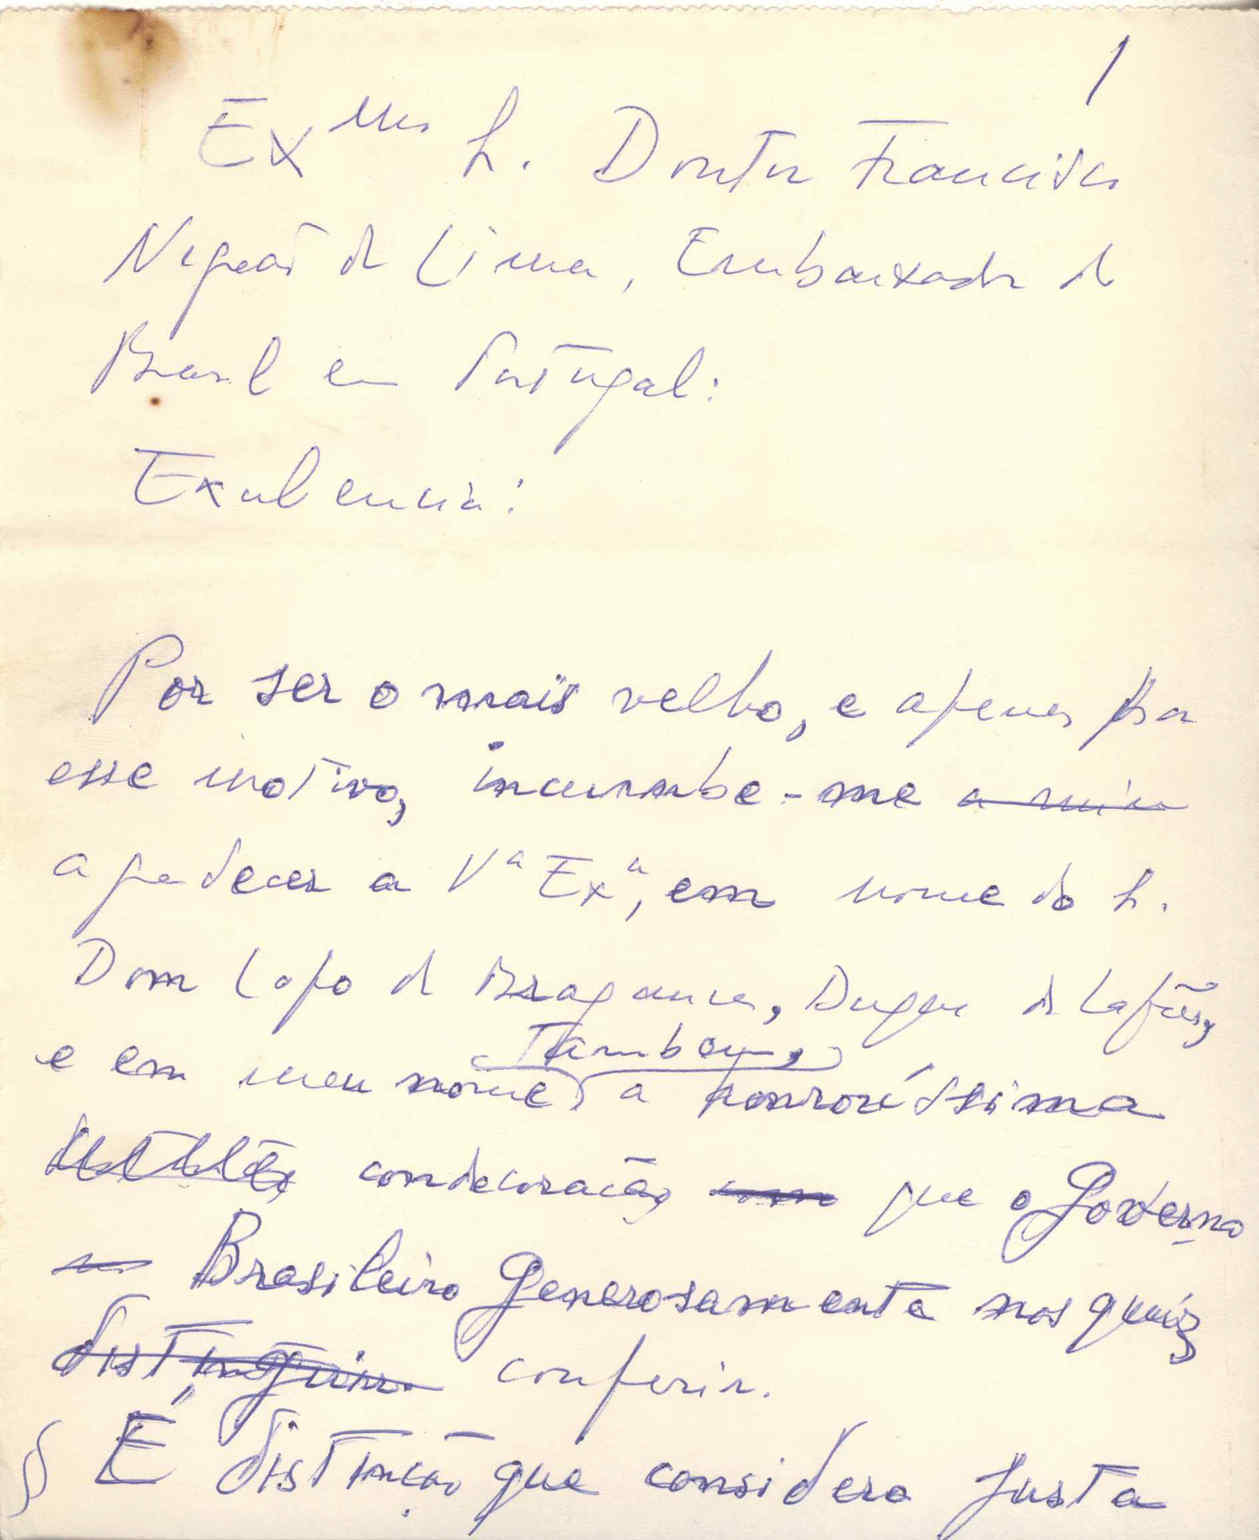 1
Exmo Sr. Doutor Francisco
Negrão de Lima, Embaixador do
Brasil em Portugal:
Excelencia:
Por ser o mais velho, e apenas por
esse motivo, incumbe-me
agradecer a Vª Exª, em nome do Sr.
Dom Lopo de Bragança, Duque de Lafões,
e em meu nome também, a honrosíssima
condecoração que o Governo
Brasileiro generosamente nos quiz
distinguir conferir.
§ É distinção que considero justa